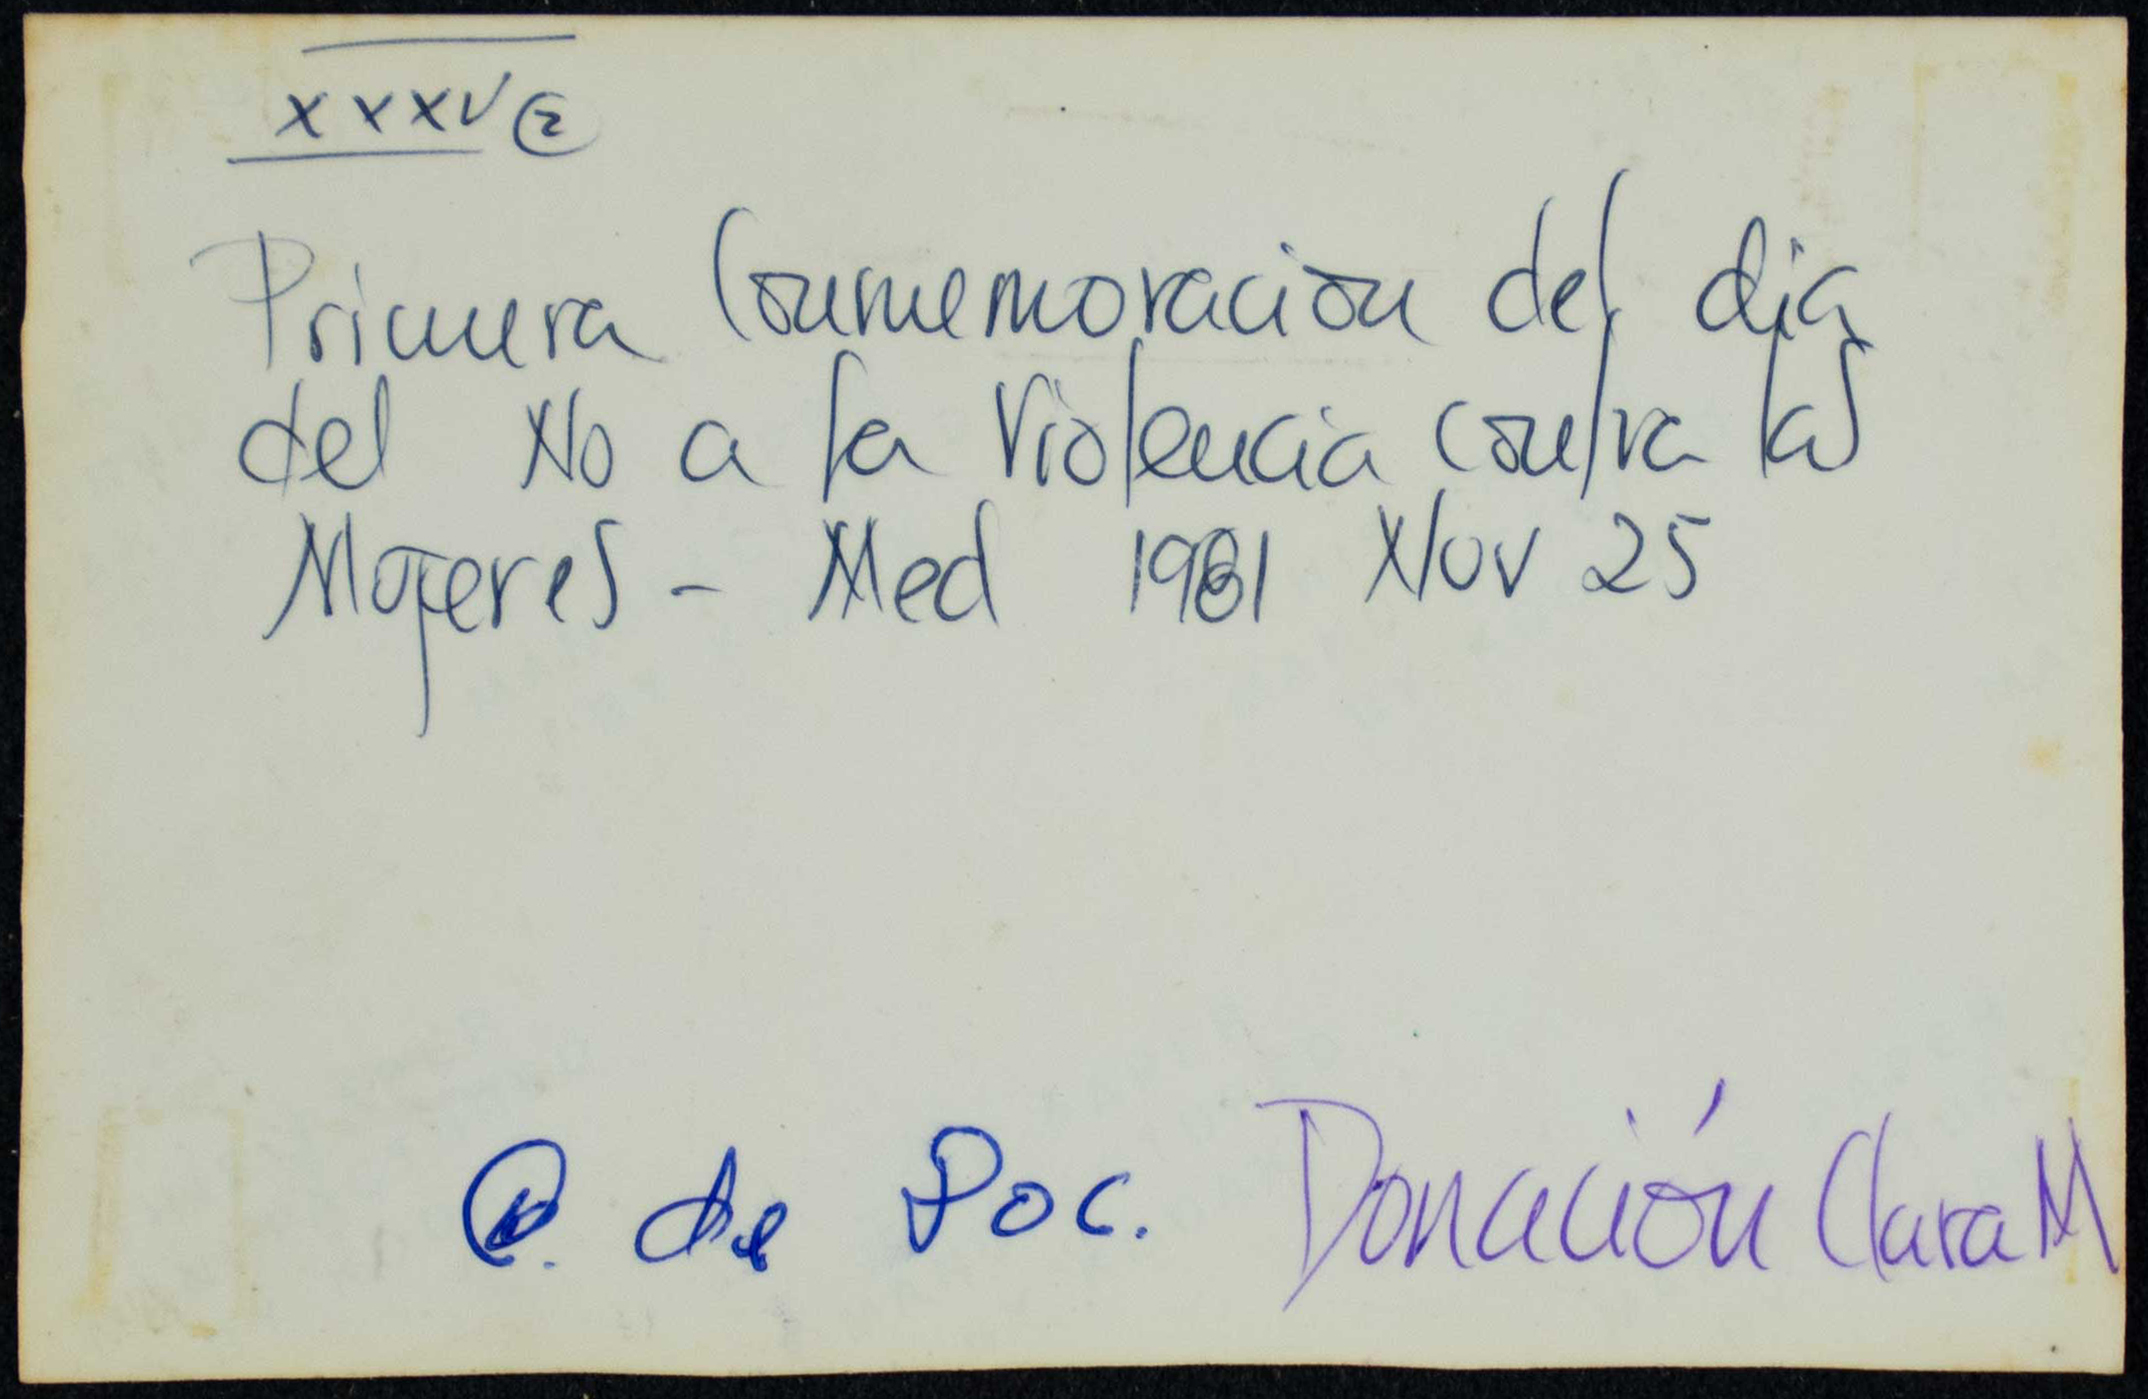 XXXV ②
Primera Conmemoracion del dia
del No a la Violencia contra las
Mujeres - Med 1981 Nov 25
C. de Doc. Donación Clara M